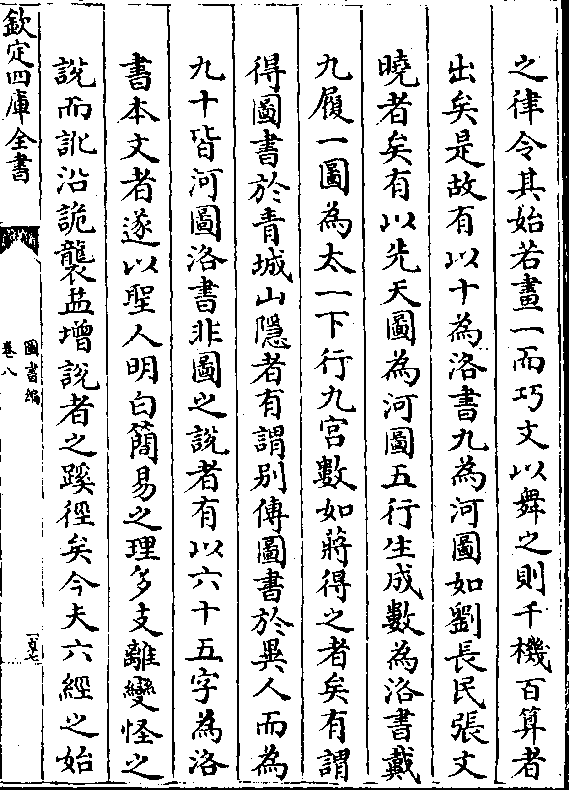 之律令其始若畫一而巧文以舞之則千機百算者
出矣是故有以十為洛書九為河圖如劉長民張文
曉者矣有以先天圖為河圖五行生成數為洛書戴
九履一圖為太一下行九宫數如蔣得之者矣有謂
得圖書於青城山隱者有謂别傳圖書於異人而為
九十皆河圖洛書非圖之說者有以六十五字為洛
書本文者遂以聖人明白簡易之理多支離變怪之
說而訛沿詭襲益增說者之蹊徑矣今夫六經之始
欽定四庫全書
圖書編
卷八